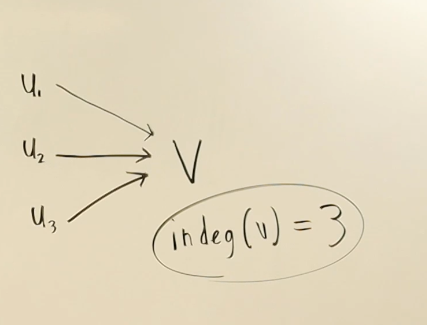 u₁
u₂
V
u₃
indeg(v) = 3